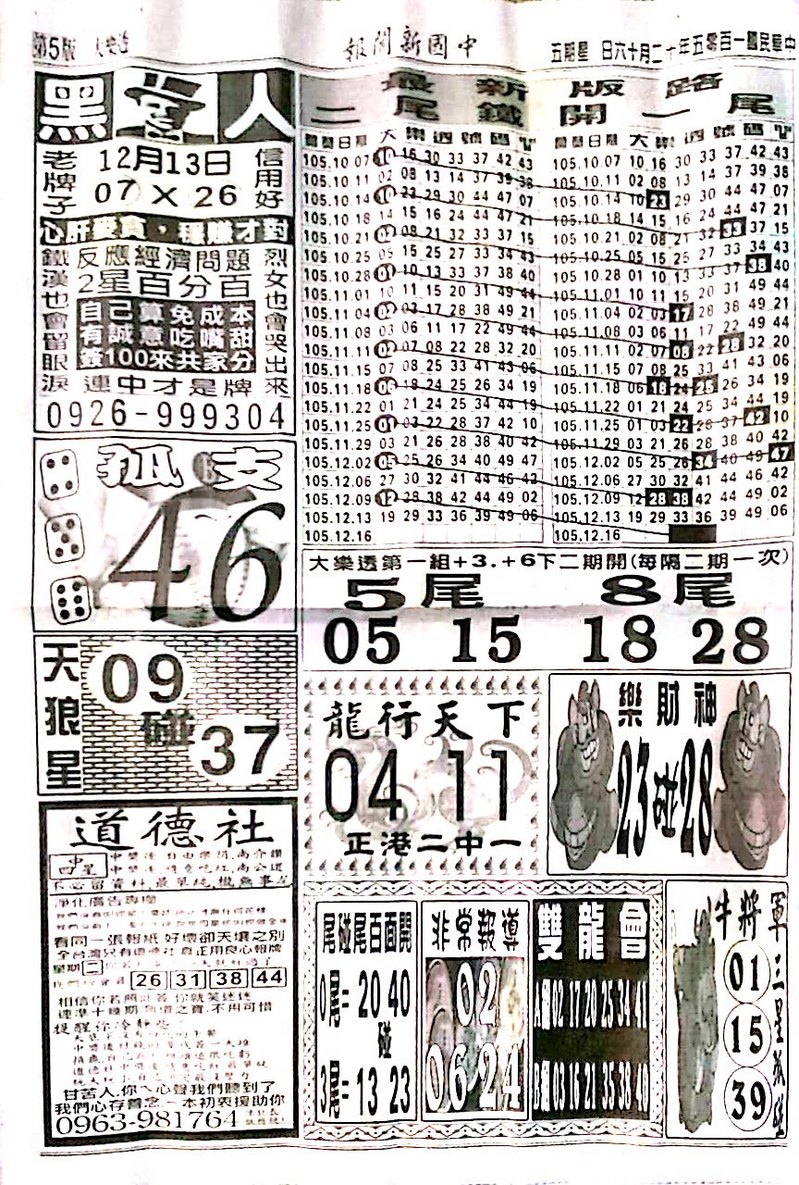 第5版 大樂透
中國新聞報
中華民國一百零五年十二月十六日 星期五
黑盒人
老牌子
12月13日
07×26
信用好
心肝愛貪，穩賺才對
鐵漢也會留眼淚
反應經濟問題
2星百分百
自己算免成本
有誠意吃嘴甜
簽100來共家分
連中才是牌
烈女也會哭出來
0926-999304
孤支
46
天狼星
09
碰
37
道德社
中四星
淨化廣告專欄
看同一張報紙 好壞卻天壤之別
星期二
26 31 38 44
甘苦人.你ㄟ心聲我們聽到了
我們心存善念.一本初衷援助你
0963-981764
最新版路
二尾鐵開一尾
開獎日期 大樂透號碼
105.10.07 10 16 30 33 37 42 43
105.10.11 02 08 13 14 37 39 38
105.10.14 10 23 29 30 44 47 07
105.10.18 14 15 16 24 44 47 21
105.10.21 02 08 21 32 33 37 15
105.10.25 05 15 25 27 33 34 43
105.10.28 01 10 13 33 37 38 40
105.11.01 10 11 15 20 31 49 44
105.11.04 02 03 17 28 38 49 21
105.11.08 03 06 11 17 22 49 44
105.11.11 02 07 08 22 28 32 20
105.11.15 07 08 25 33 41 43 06
105.11.18 06 18 24 25 26 34 19
105.11.22 01 21 24 25 34 44 19
105.11.25 01 03 22 28 37 42 10
105.11.29 03 21 26 28 38 40 42
105.12.02 05 25 26 34 40 49 47
105.12.06 27 30 32 41 44 46 42
105.12.09 12 28 38 42 44 49 02
105.12.13 19 29 33 36 39 49 06
105.12.16
開獎日期 大樂透號碼
105.10.07 10 16 30 33 37 42 43
105.10.11 02 08 13 14 37 39 38
105.10.14 10 23 29 30 44 47 07
105.10.18 14 15 16 24 44 47 21
105.10.21 02 08 21 32 33 37 15
105.10.25 05 15 25 27 33 34 43
105.10.28 01 10 13 33 37 38 40
105.11.01 10 11 15 20 31 49 44
105.11.04 02 03 17 28 38 49 21
105.11.08 03 06 11 17 22 49 44
105.11.11 02 07 08 22 28 32 20
105.11.15 07 08 25 33 41 43 06
105.11.18 06 18 24 25 26 34 19
105.11.22 01 21 24 25 34 44 19
105.11.25 01 03 22 28 37 42 10
105.11.29 03 21 26 28 38 40 42
105.12.02 05 25 26 34 40 49 47
105.12.06 27 30 32 41 44 46 42
105.12.09 12 28 38 42 44 49 02
105.12.13 19 29 33 36 39 49 06
105.12.16
大樂透第一組+3.+6下二期開(每隔二期一次)
5尾 8尾
05 15 18 28
龍行天下
04 11
正港二中一
樂財神
23碰28
尾碰尾百面開
0尾=20 40
碰
3尾=13 23
非常報導
02
06 24
雙龍會
A組02 17 20 25 34 41
B組03 15 21 35 38 40
牛將軍
三星孤碰
01
15
39